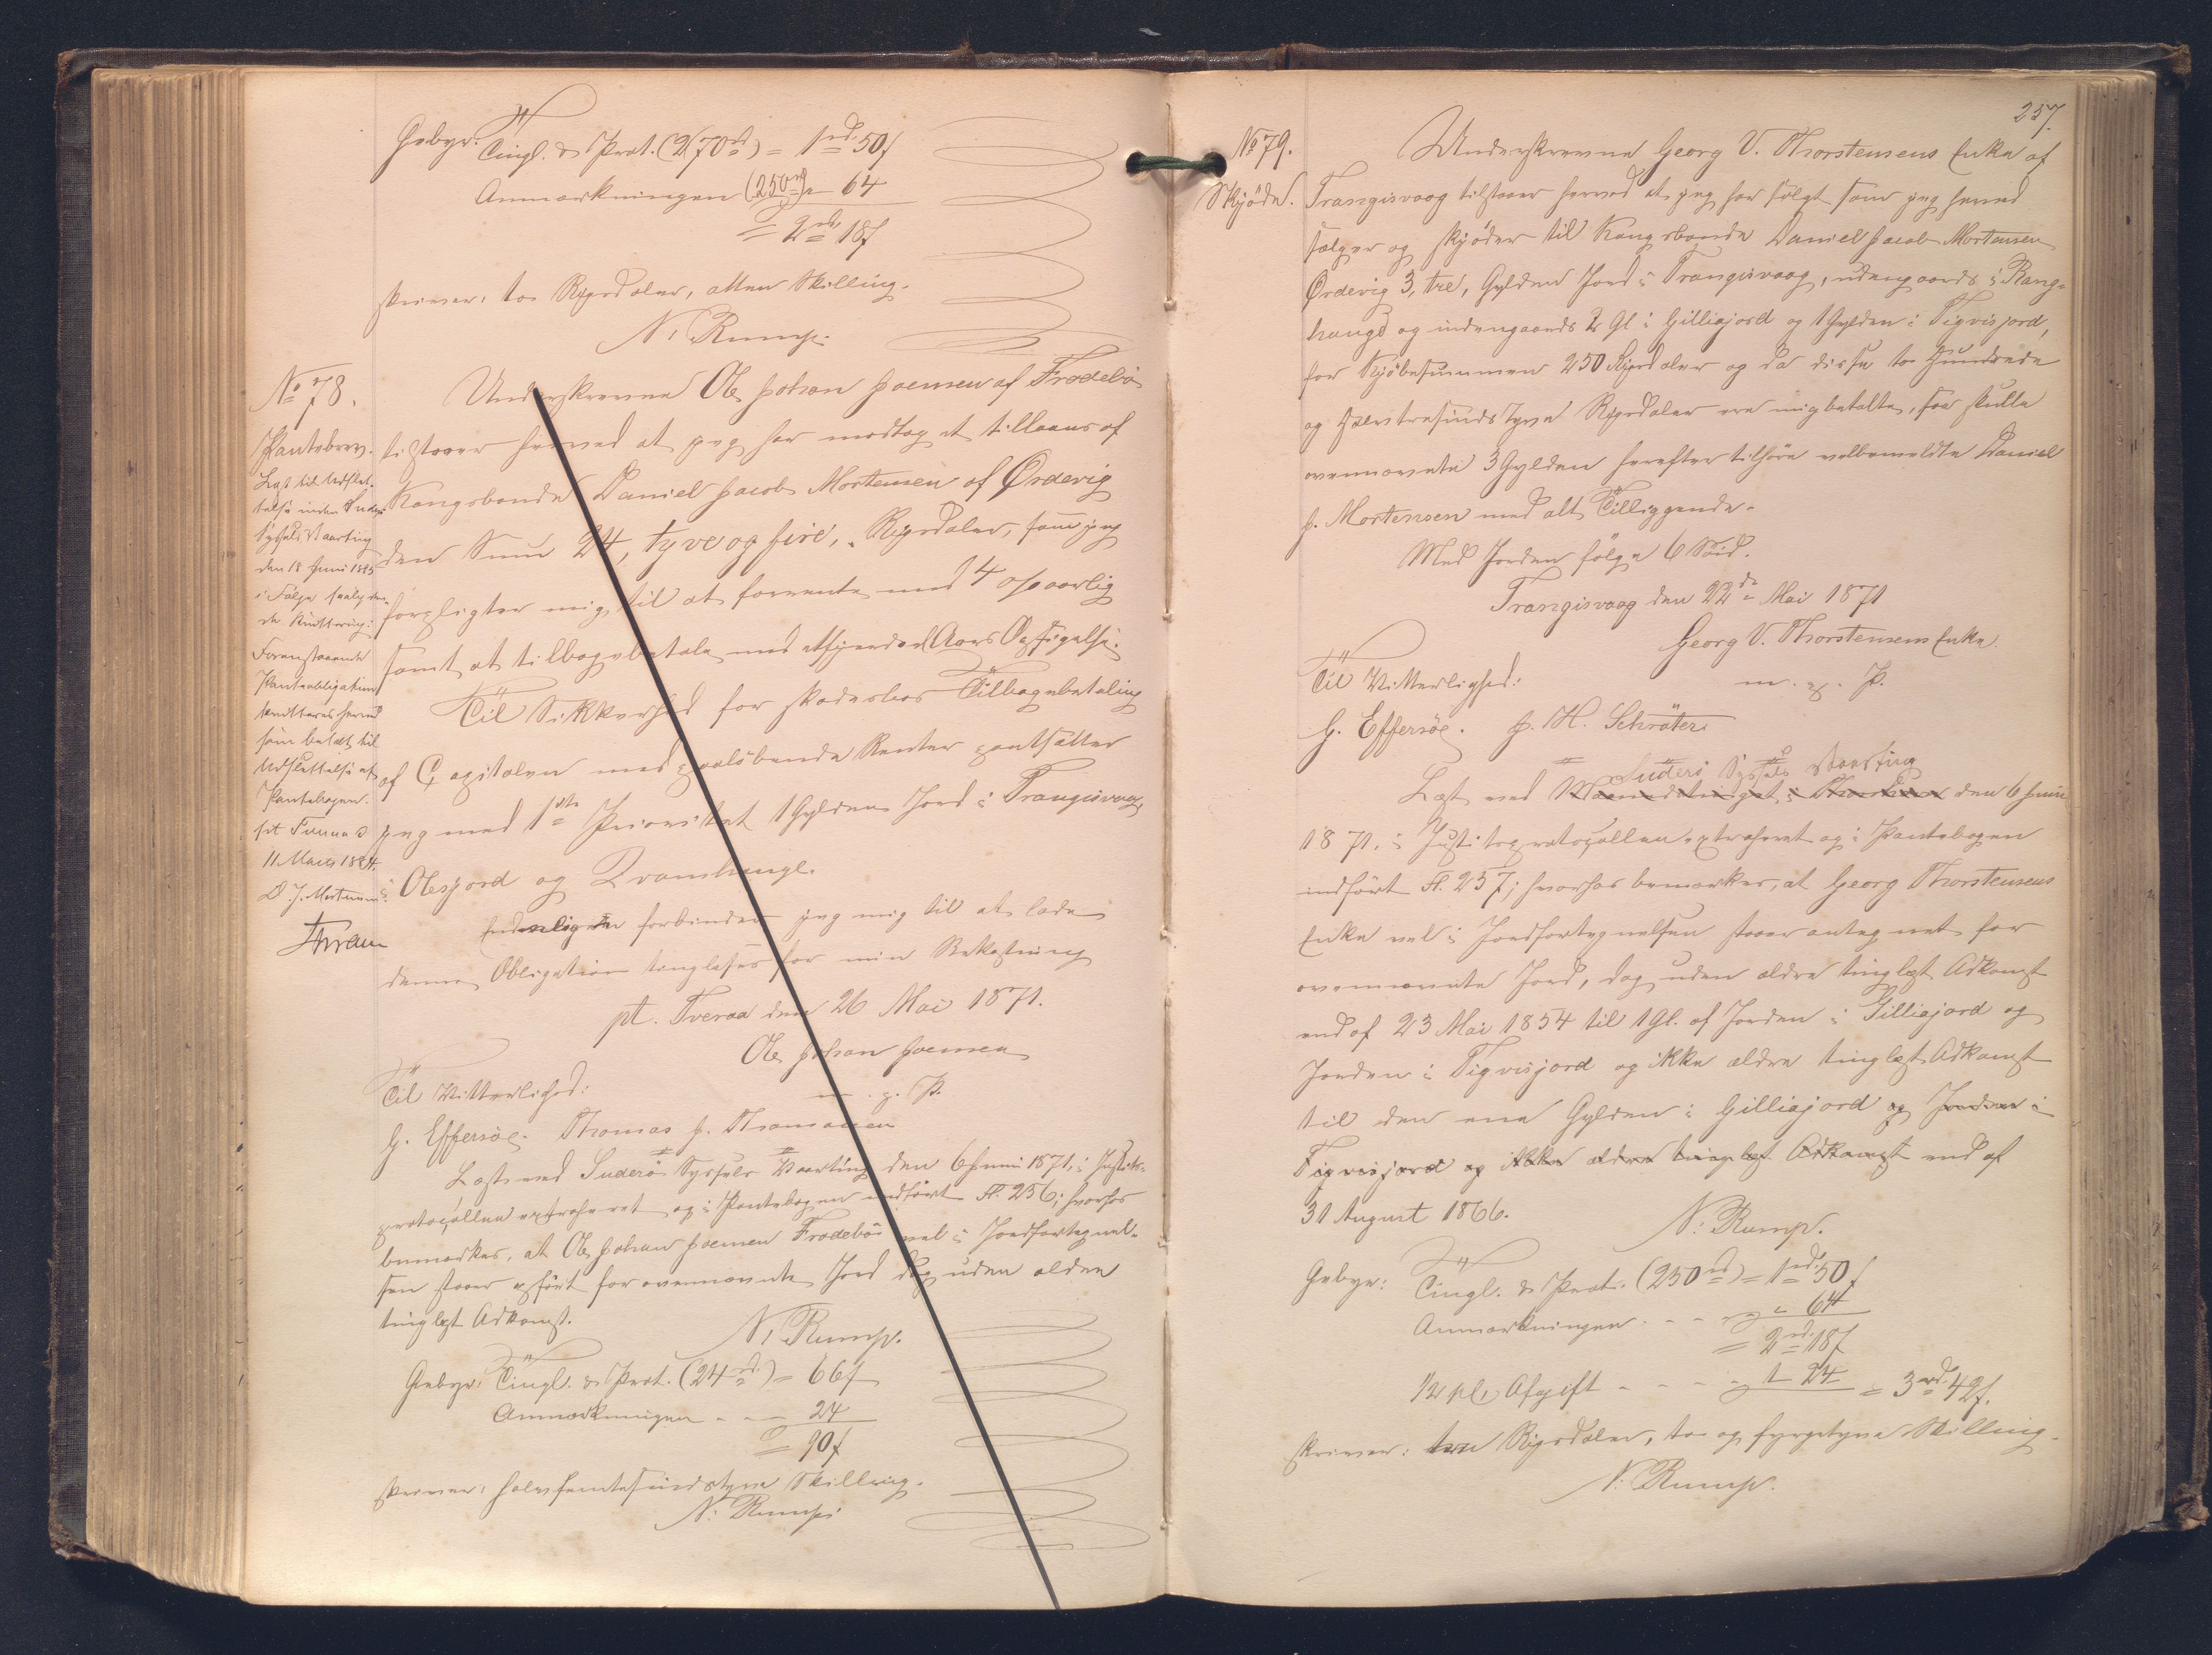 Gebyr: Tingl. & Prot. (270 rd) = 1 rd. 50 ß
Anmærkningen (250 rd) = 64
= 2 rd. 18 ß
skriver: to Rigsdaler, atten Skilling.
N. Rump.
No 78.
Pantebrev.
Læst til Udslet-
telse inden Suderø
Syssels Vaarting
den 18 Juni 1885
i Følge saalyden-
de Kvittering:
Foranstaaende
Panteobligation
kvitteres herved
som betalt til
Udslettelse af
Pantebogen.
pt Tveraa d
11 Marts 1884.
D. J. Mortensen.
Underskrevne Ole Johan Joensen af Frodebø
tilstaaer herved at jeg har modtaget tillaans af
Kongsbonde Daniel Jacob Mortensen af Ørdevig
den Sum 24, tyve og fire, Rigsdaler, som jeg
forpligter mig til at forrente med 4 o/o aarlig
samt at tilbagebetale med et Aars Opsigelse.
Til Sikkerhed for skadesløs Tilbagebetaling
af Capitalen med paaløbende Renter pantsætter
jeg med 1ste Prioritet 1 Gylden Jord i Trangisvaag,
i Olesjord og Qvamhauge.
Endeligen forbinder jeg mig til at lade
denne Obligation tinglæses for min Bekostning
pt. Tveraa den 26 Mai 1871.
Ole Johan Joensen
m. p. P.
Til Vitterlighed:
G. Effersøe. Thomas J. Thomassen
Læst ved Suderø Syssels Vaarting den 6 Juni 1871, i Justits-
protocollen extraheret og i Pantebogen indført Fl. 256; hvorhos
bemærkes, at Ole Johan Joensen Frodebø vel i Jordfortegnel-
sen staaer opført for ovennævnte Jord dog uden ældre
tinglæst Adkomst.
N. Rump.
Gebyr: Tingl. & Prot. (24 rd.) = 66 ß
Anmærkningen - - 24
= 90 ß
skriver: halvfemtesindstyve Skilling.
N. Rump.
257.
No 79.
Skjøde.
Underskrevne Georg V. Thorstensens Enke af
Trangisvaag tilstaaer herved at jeg har solgt som jeg herved
sælger og skjøder til Kongsbonde Daniel Jacob Mortensen
Ørdevig 3, tre, Gylden Jord i Trangisvaag, udengaards i Rang-
hauge og indengaards 2 Gl i Gilliajord og 1 Gylden i Tigvisjord,
for Kjøbesummen 250 Rigsdaler og da disse to Hundrede
og halvtresindstyve Rigsdaler ere mig betalte, saa skulle
ovennævnte 3 Gylden herefter tilhøre velbemeldte Daniel
J. Mortensen med alt Tilliggende.
Med Jorden følge 6 Søid.
Trangisvaag den 22de Mai 1871
Georg V. Thorstensens Enke.
m. p. P.
Til Vitterlighed:
G. Effersøe. J. H. Schrøter
Suderø Syssels Vaarting
Læst ved den 6 Juni
1871, i Justitsprotocollen extraheret og i Pantebogen
indført Fl. 257; hvorhos bemærkes, at Georg Thorstensens
Enke vel i Jordfortegnelsen staaer antegnet for
ovennævnte Jord, dog uden ældre tinglæst Adkomst
end af 23 Mai 1854 til 1 Gl. af Jorden i Gilliajord og
Jorden i Tigvisjord og ikke ældre tinglæst Adkomst
til den ene Gylden i Gilliajord og Jorden i
Tigvisjord og ikke ældre tinglæst Adkomst end af
31 August 1866.
N. Rump.
Gebyr: Tingl. & Prot. (250 rd) = 1 rd. 50 ß
Anmærkningen - - - 64
= 2 rd. 18 ß
1/2 pCt Afgift - - - 1 - 24 = 3 rd. 42 ß.
skriver: tre Rigsdaler, to og fyrgetyve Skilling.
N. Rump.